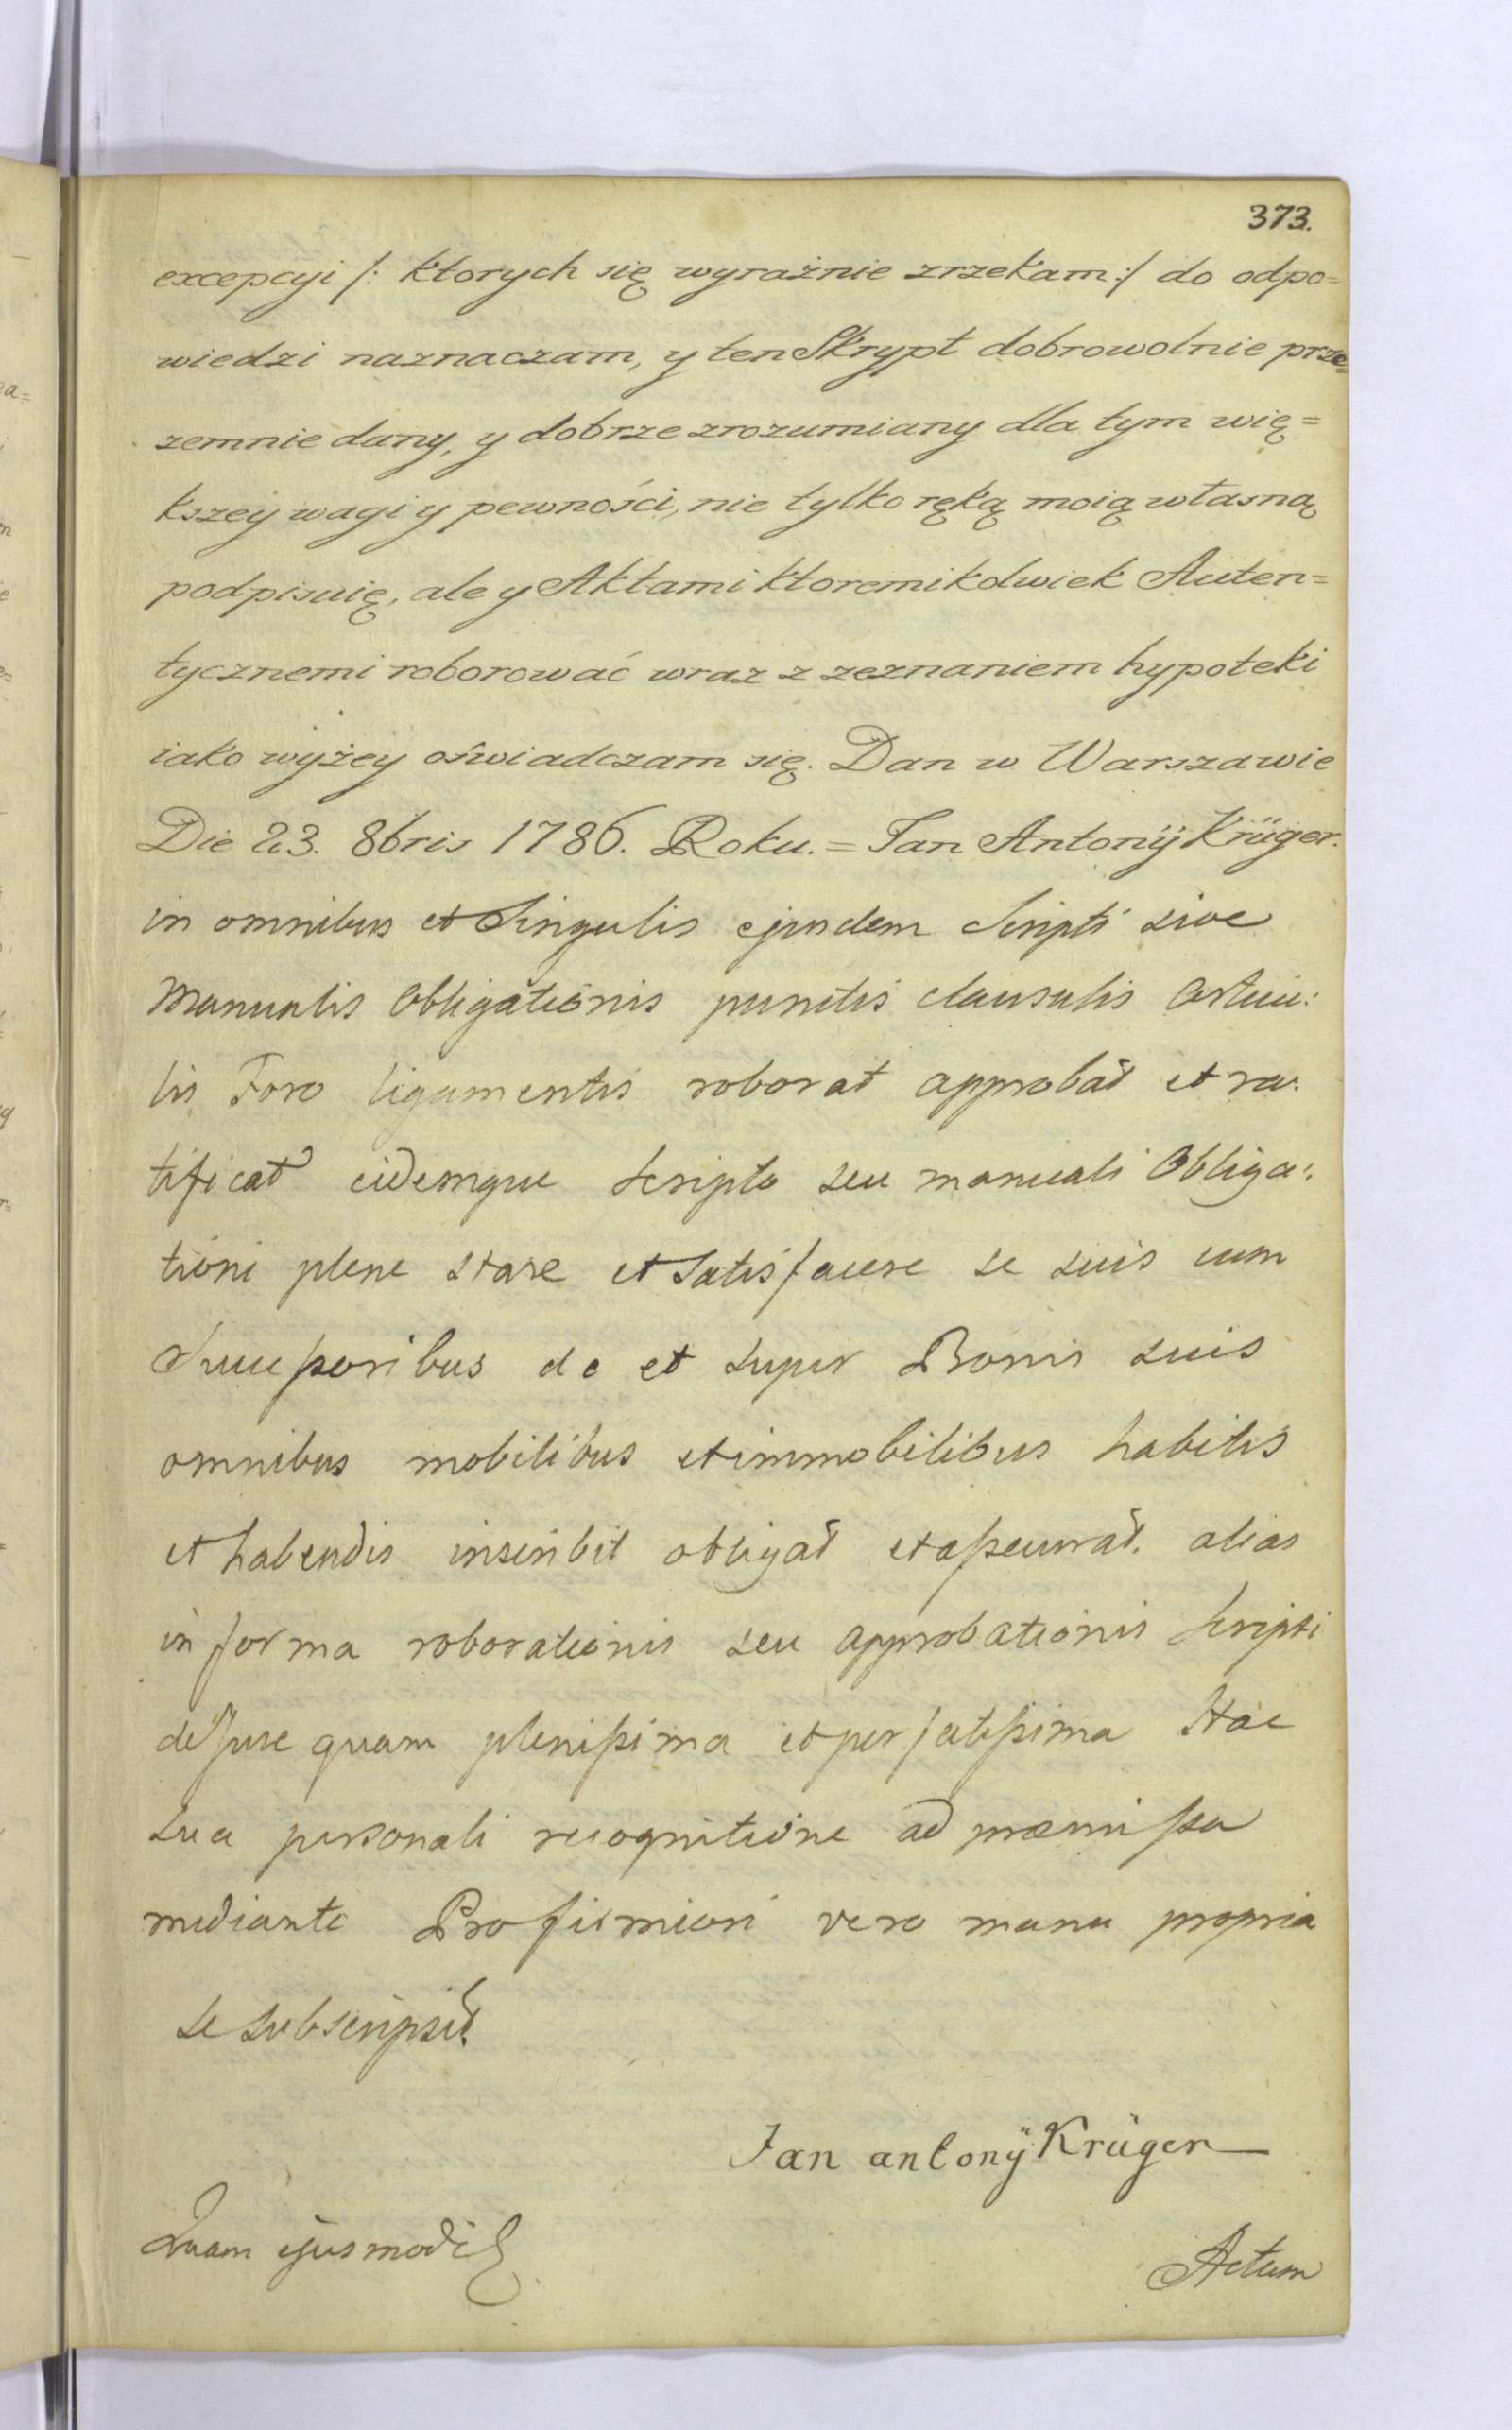 373.
excepcyi /: ktorych się wyraźnie zrzekam :/ do odpo=
wiedzi naznaczam, y ten Skrypt dobrowolnie prze=
zemnie dany, y dobrze zrozumiany dla tym wię=
kszey wagi y pewności, nie tylko ręką moią własną
podpisuię, ale y Aktami ktoremikolwiek Auten=
tycznemi roborować wraz z zeznaniem hypoteki
iako wyżey oświadczam się. Dan w Warszawie
Die 23. 8bris 1786. Roku. = Jan Antonÿ Krüger.
in omnibus et Singulis ejusdem Scripti sive
Manualis Obligationis punctis clausulis Articu:
lis Foro ligamentis roborat approbat et ra:
tificat eidemque Scripto seu manuali Obliga:
tioni plene stare et Satisfacere se suis cum
Succeßoribus de et super Bonis suis
omnibus mobilibus et immobilibus habitis
et habendis inscribit obligat et aßecurat. alias
in forma roborationis seu approbationis Scripti
de Jure quam plenißima et perfectißima Hac
sua personali recognitione ad præmißa
mediante Pro firmiori vero manu propria
se subscripsit.
Jan antonÿ Krüger
Quam ejusmodi
Actum